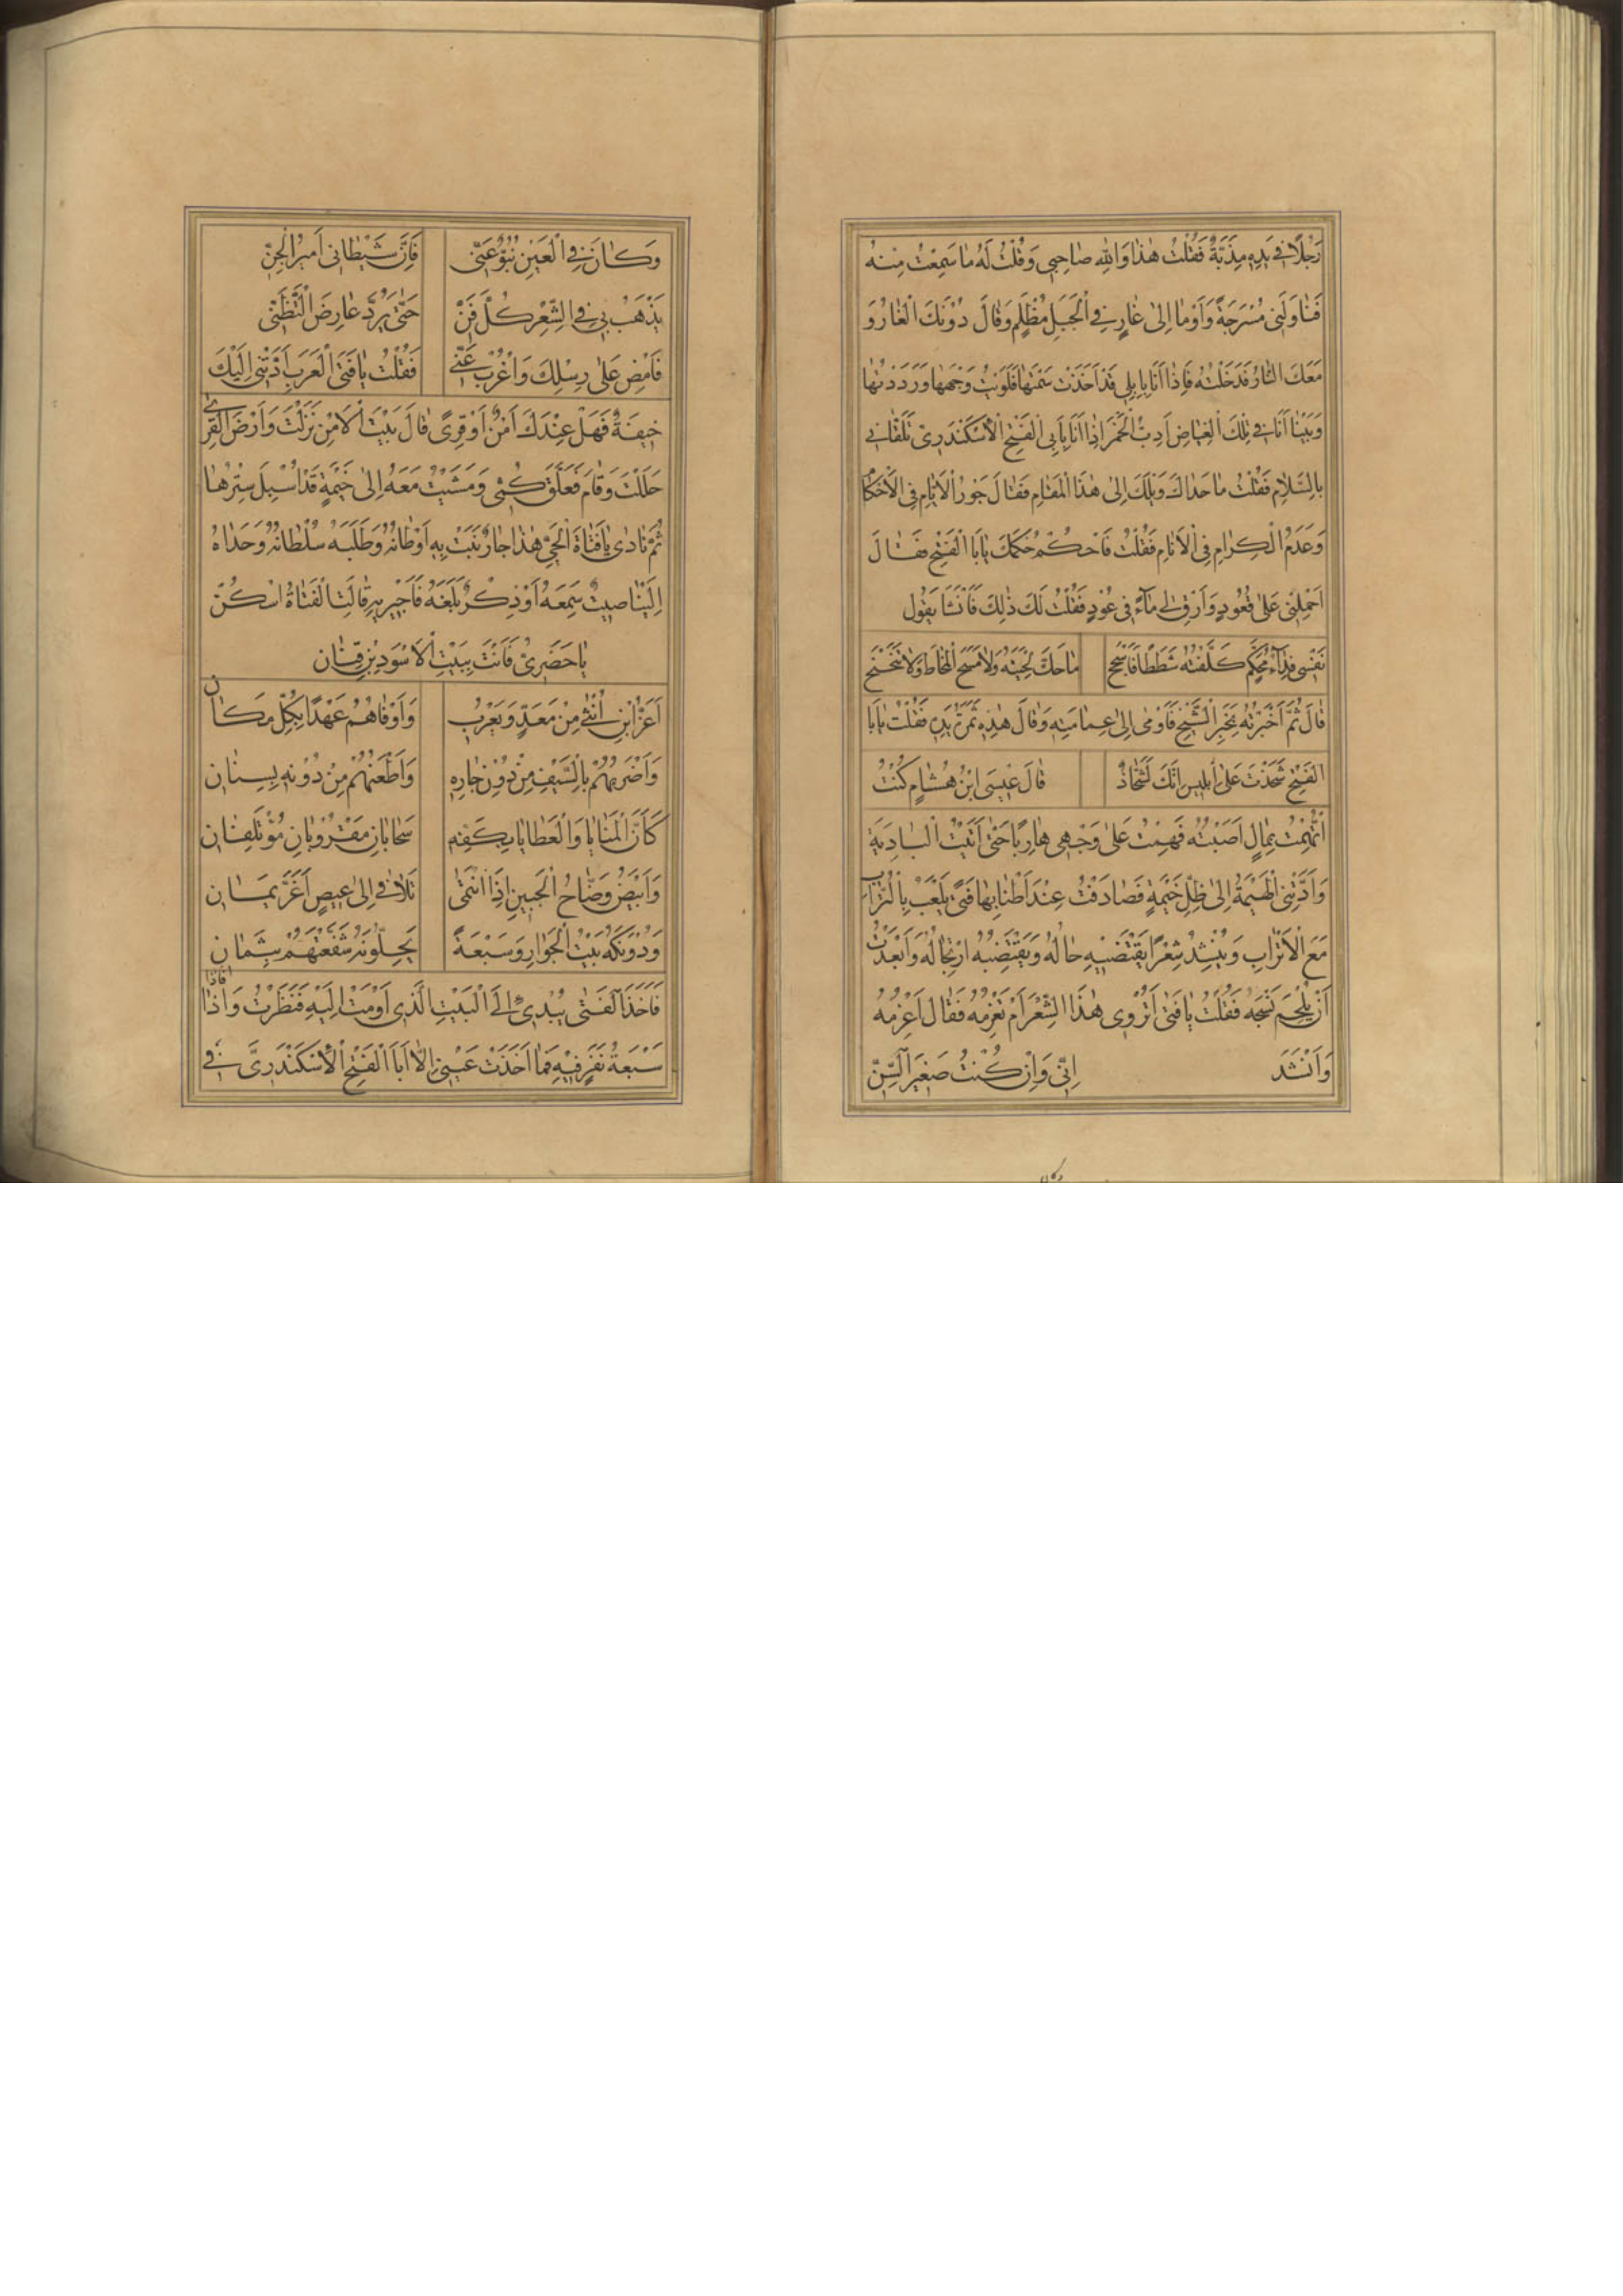 رَجُلًا فِي يَدِهِ مِذَبَّةٌ فَقُلْتُ هٰذَا وَاللهِ صَاحِبِي وَقُلْتُ لَهُ مَا سَمِعْتُ مِنْهُ
فَنَاوَلَنِي مُسْرَجَةً وَأَوْمَا إِلَى غَارٍ فِي الْجَبَلِ مُظْلِمٍ وَقَالَ دُونَكَ الْغَارُ وَ
مَعَكَ النَّارُ فَدَخَلْتُهُ فَإِذَا أَنَا بِإِبِلِي قَدْ أَخَذَتْ سَمْتَهَا فَلَوَيْتُ وَجْهَهَا وَرَدَدْتُهَا
وَبَيْنَا أَنَا فِي تِلْكَ الْغِيَاضِ أَدِبُّ الْخَمَرَ إِذَا أَنَا بِأَبِي الْفَتْحِ الْأَسْكَنْدَرِيِّ تَلَقَّانِي
بِالسَّلَامِ فَقُلْتُ مَا حَدَاكَ وَيْلَكَ إِلَى هٰذَا الْمَقَامِ فَقَالَ جَوْرُ الْأَيَّامِ فِي الْأَحْكَامِ
وَعَدَمُ الْكِرَامِ فِي الْأَنَامِ فَقُلْتُ فَاحْكُمْ حُكْمَكَ يَا أَبَا الْفَتْحِ فَقَالَ
احْمِلْنِي عَلَى قَعُودٍ وَأَرِقْ لِي مَاءً فِي عُودٍ فَقُلْتُ لَكَ ذٰلِكَ فَأَنْشَأَ يَقُولُ
نَفْسِي فِدَاءُ مُحَكَّمٍ كَلَّفْتُهُ شَطَطًا فَأَسْجَحَ مَا حَكَّ لِحْيَتَهُ وَلَا مَسَحَ الْمُخَاطَ وَلَا تَنَحْنَحَ
قَالَ ثُمَّ أَخْبَرْتُهُ بِخَبَرِ الشَّيْخِ فَأَوْمَى إِلَى عِمَامَتِهِ وَقَالَ هٰذِهِ ثَمَرَةُ بِرِّهِ فَقُلْتُ يَا أَبَا
الْفَتْحِ شَحَذْتَ عَلَى إِبْلِيسَ إِنَّكَ لَشَحَّاذٌ قَالَ عِيسَى ابْنُ هِشَامٍ كُنْتُ
اُتُّهِمْتُ بِمَالٍ أَصَبْتُهُ فَهِمْتُ عَلَى وَجْهِي هَارِبًا حَتَّى أَتَيْتُ الْبَادِيَةَ
وَأَدَّتْنِي الْهَيْمَةُ إِلَى ظِلِّ خَيْمَةٍ فَصَادَفْتُ عِنْدَ أَطْنَابِهَا فَتًى يَلْعَبُ بِالتُّرَابِ
مَعَ الْأَتْرَابِ وَيُنْشِدُ شِعْرًا يَقْتَضِيهِ حَالُهُ وَيَقْتَضِبُهُ ارْتِجَالُهُ وَأَبْعَدْتُ
أَنْ يُلْحِمَ نَسْجَهُ فَقُلْتُ يَا فَتَى أَتَرْوِي هٰذَا الشِّعْرَ أَمْ تَعْزِمُهُ فَقَالَ أَعْزِمُهُ
وَأَنْشَدَ إِنِّي وَإِنْ كُنْتُ صَغِيرَ السِّنِّ
وَكَانَ فِي الْعَيْنِ نُبُوٌّ عَنِّي فَإِنَّ شَيْطَانِي أَمِيرُ الْجِنِّ
يَذْهَبُ بِي فِي الشِّعْرِ كُلَّ فَنٍّ حَتَّى يَرُدَّ عَارِضَ التَّظَنِّي
فَامْضِ عَلَى رِسْلِكَ وَاغْرُبْ عَنِّي فَقُلْتُ يَا فَتَى الْعَرَبِ أَدَّتْنِي إِلَيْكَ
خِيفَةٌ فَهَلْ عِنْدَكَ أَمْنٌ أَوْ قِرًى قَالَ بَيْتَ الْأَمْنِ نَزَلْتَ وَأَرْضَ الْقِرَى
حَلَلْتَ وَقَامَ فَعَلَّقَ كُمِّي وَمَشَيْتُ مَعَهُ إِلَى خَيْمَةٍ قَدْ أُسْبِلَ سِتْرُهَا
ثُمَّ نَادَى يَا فَتَاةَ الْحَيِّ هٰذَا جَارٌ نَبَتْ بِهِ أَوْطَانُهُ وَطَلَبَهُ سُلْطَانُهُ وَحَدَاهُ
إِلَيْنَا صِيتٌ سَمِعَهُ أَوْ ذِكْرٌ بَلَغَهُ فَأَجِيرِيهِ قَالَتِ الْفَتَاةُ اسْكُنْ
يَا حَضَرِيُّ فَأَنْتَ بِبَيْتِ الْأَسْوَدِ بْنِ قِنَانِ
أَعَزُّ ابْنِ أُنْثَى مِنْ مَعَدٍّ وَيَعْرُبٍ وَأَوْفَاهُمْ عَهْدًا بِكُلِّ مَكَانِ
وَأَضْرَبُهُمْ بِالسَّيْفِ مِنْ دُونِ جَارِهِ وَأَطْعَنُهُمْ مِنْ دُونِهِ بِسِنَانِ
كَأَنَّ الْمَنَايَا وَالْعَطَايَا بِكَفِّهِ سَحَابَانِ مَقْرُونَانِ مُؤْتَلِفَانِ
وَأَبْيَضُ وَضَّاحُ الْجَبِينِ إِذَا انْتَمَى تَلَاقَى إِلَى عِيصٍ أَغَرَّ يَمَانِ
وَدُونَكَهُ بَيْتُ الْجِوَارِ وَسَبْعَةً يَحِلُّونَهُ شَفَعْتَهُمْ بِثَمَانِ
فَأَخَذَ الْفَتَى بِيَدِي إِلَى الْبَيْتِ الَّذِي أَوْمَتْ إِلَيْهِ فَنَظَرْتُ وَإِذَا فَإِذَا
سَبْعَةُ نَفَرٍ فِيهِ فَمَا أَخَذَتْ عَيْنِي إِلَّا أَبَا الْفَتْحِ الْأَسْكَنْدَرِيَّ فِي